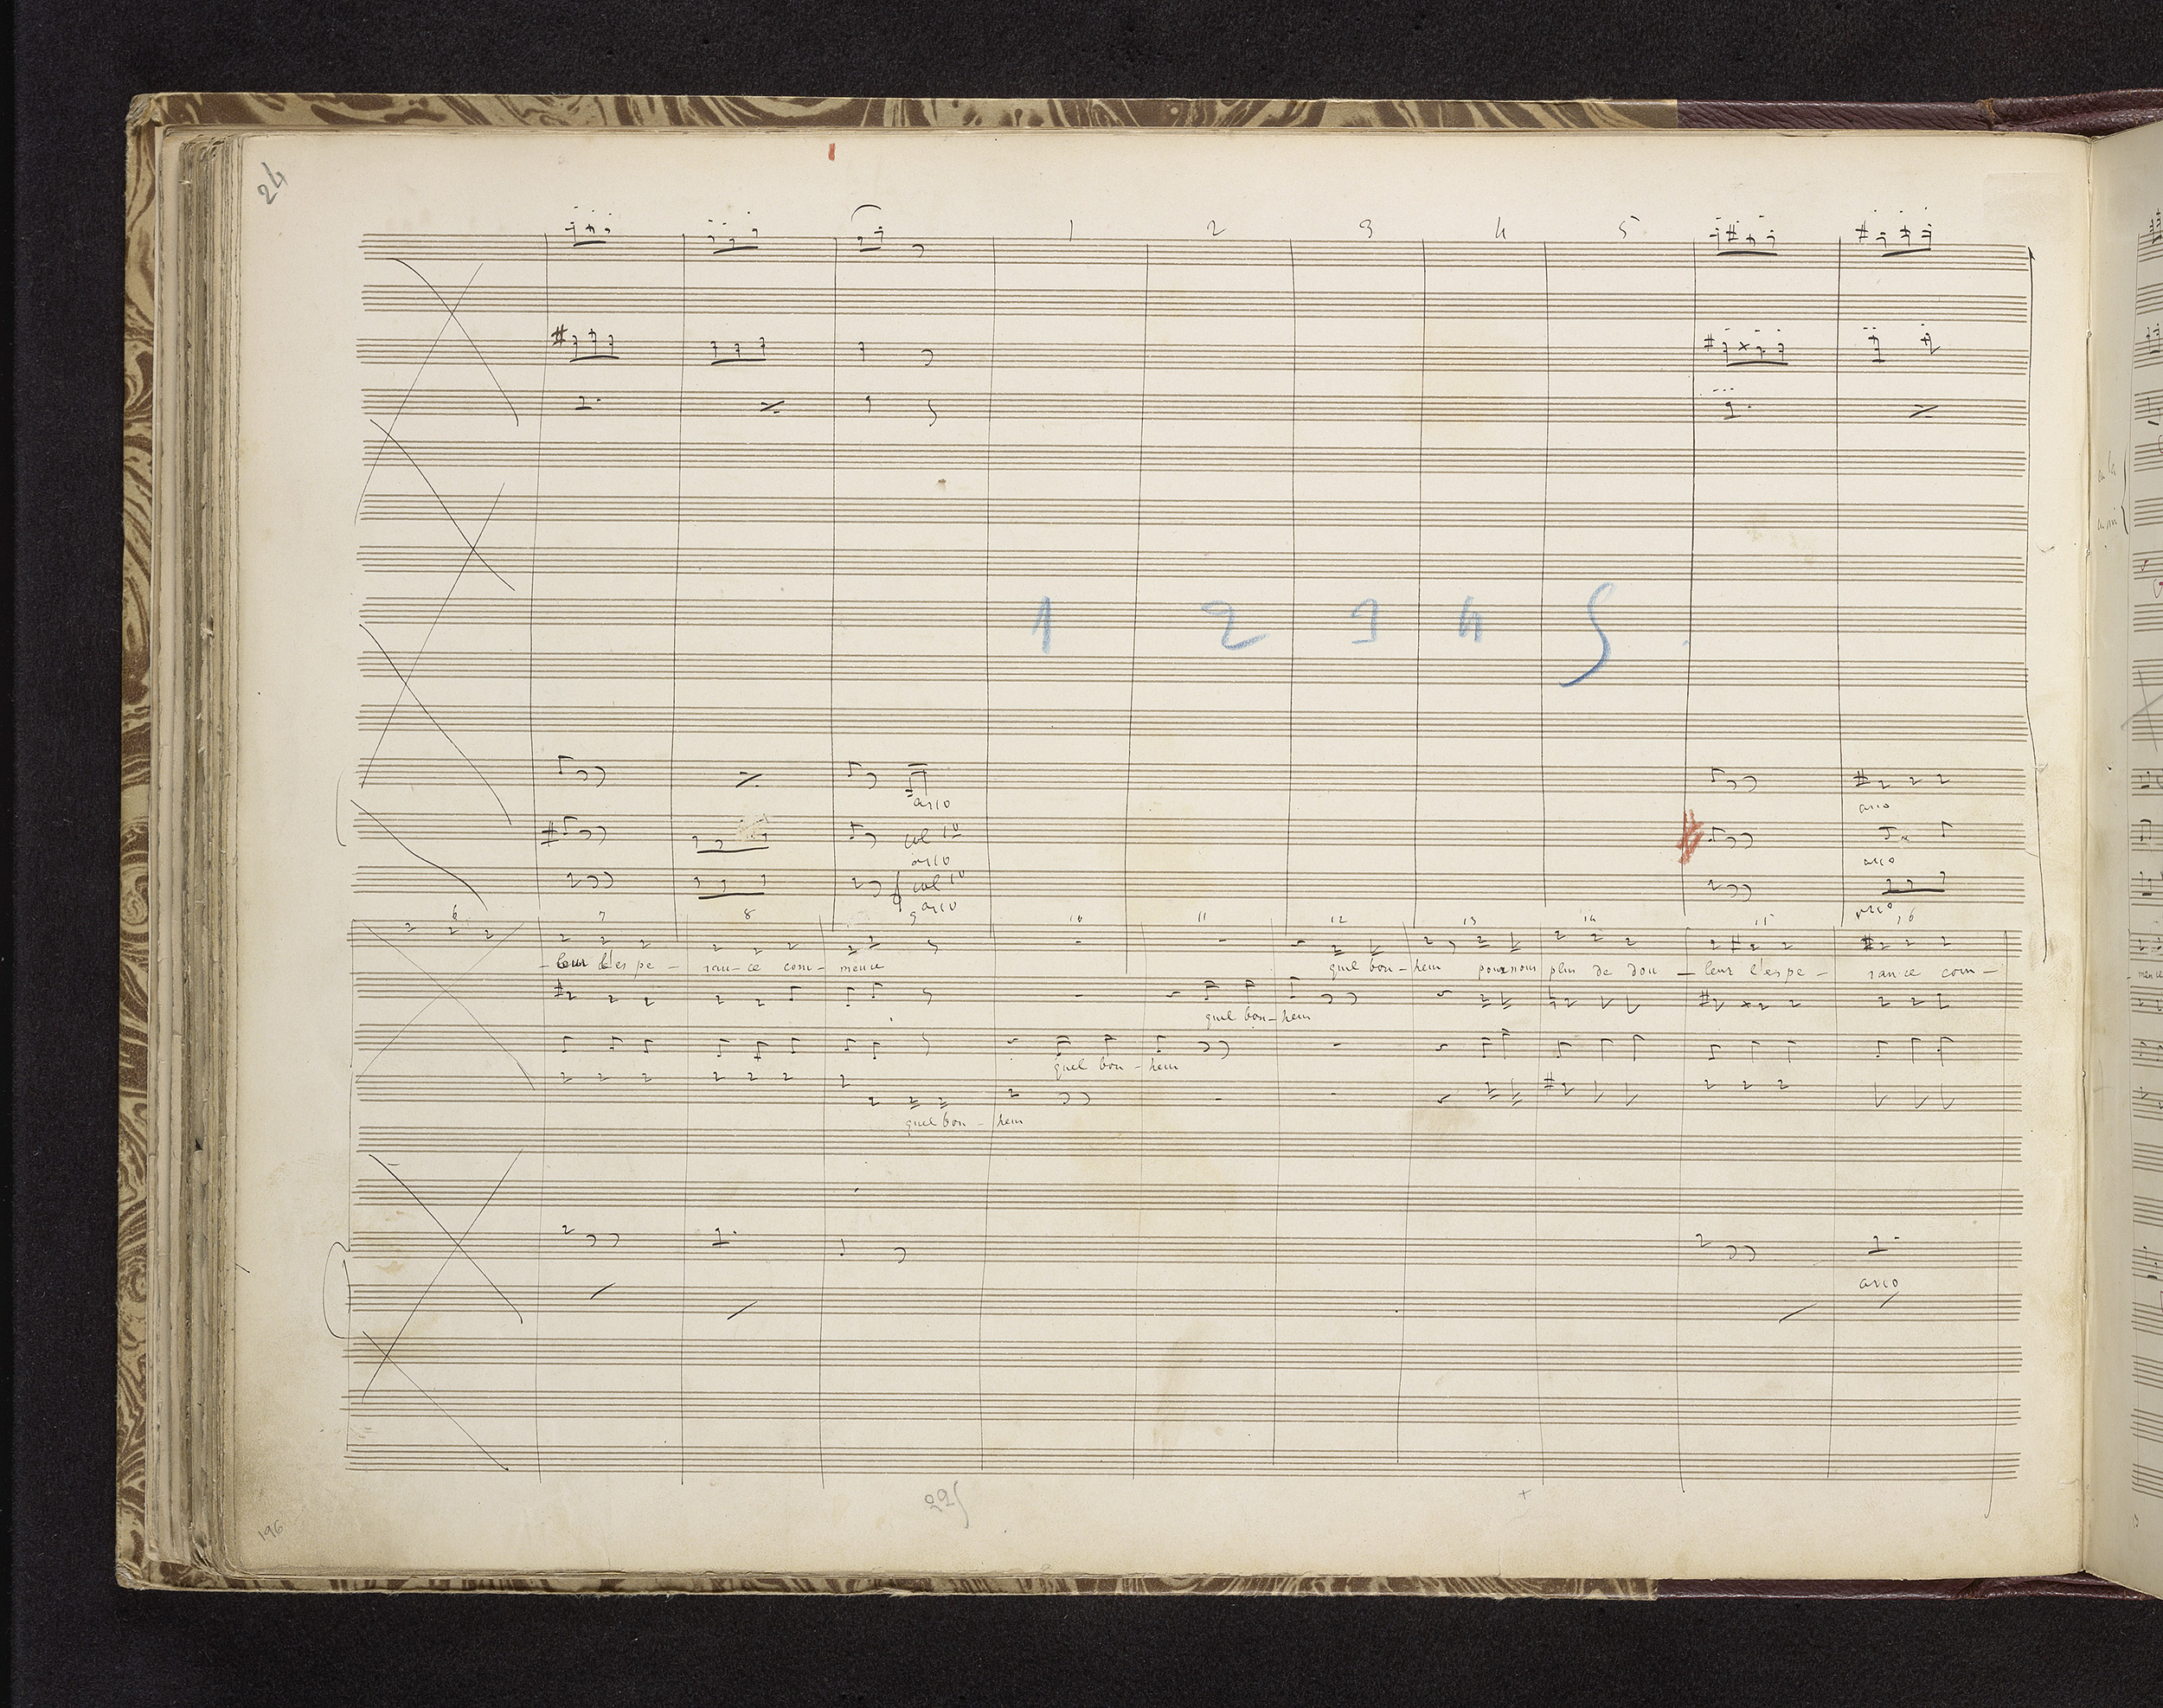 24
1 2 3 4 5
1 2 3 4 5
arco
arco
col 1o
arco
arco
col 1o
arco
arco
6 7 8 9 10 11 12 13 14 15 16
- leur l'espe - ran - ce com - mence quel bon - heur pour nous plus de dou - leur l'espe - ran - ce com -
quel bon - heur
quel bon - heur
quel bon - heur
arco
225
196